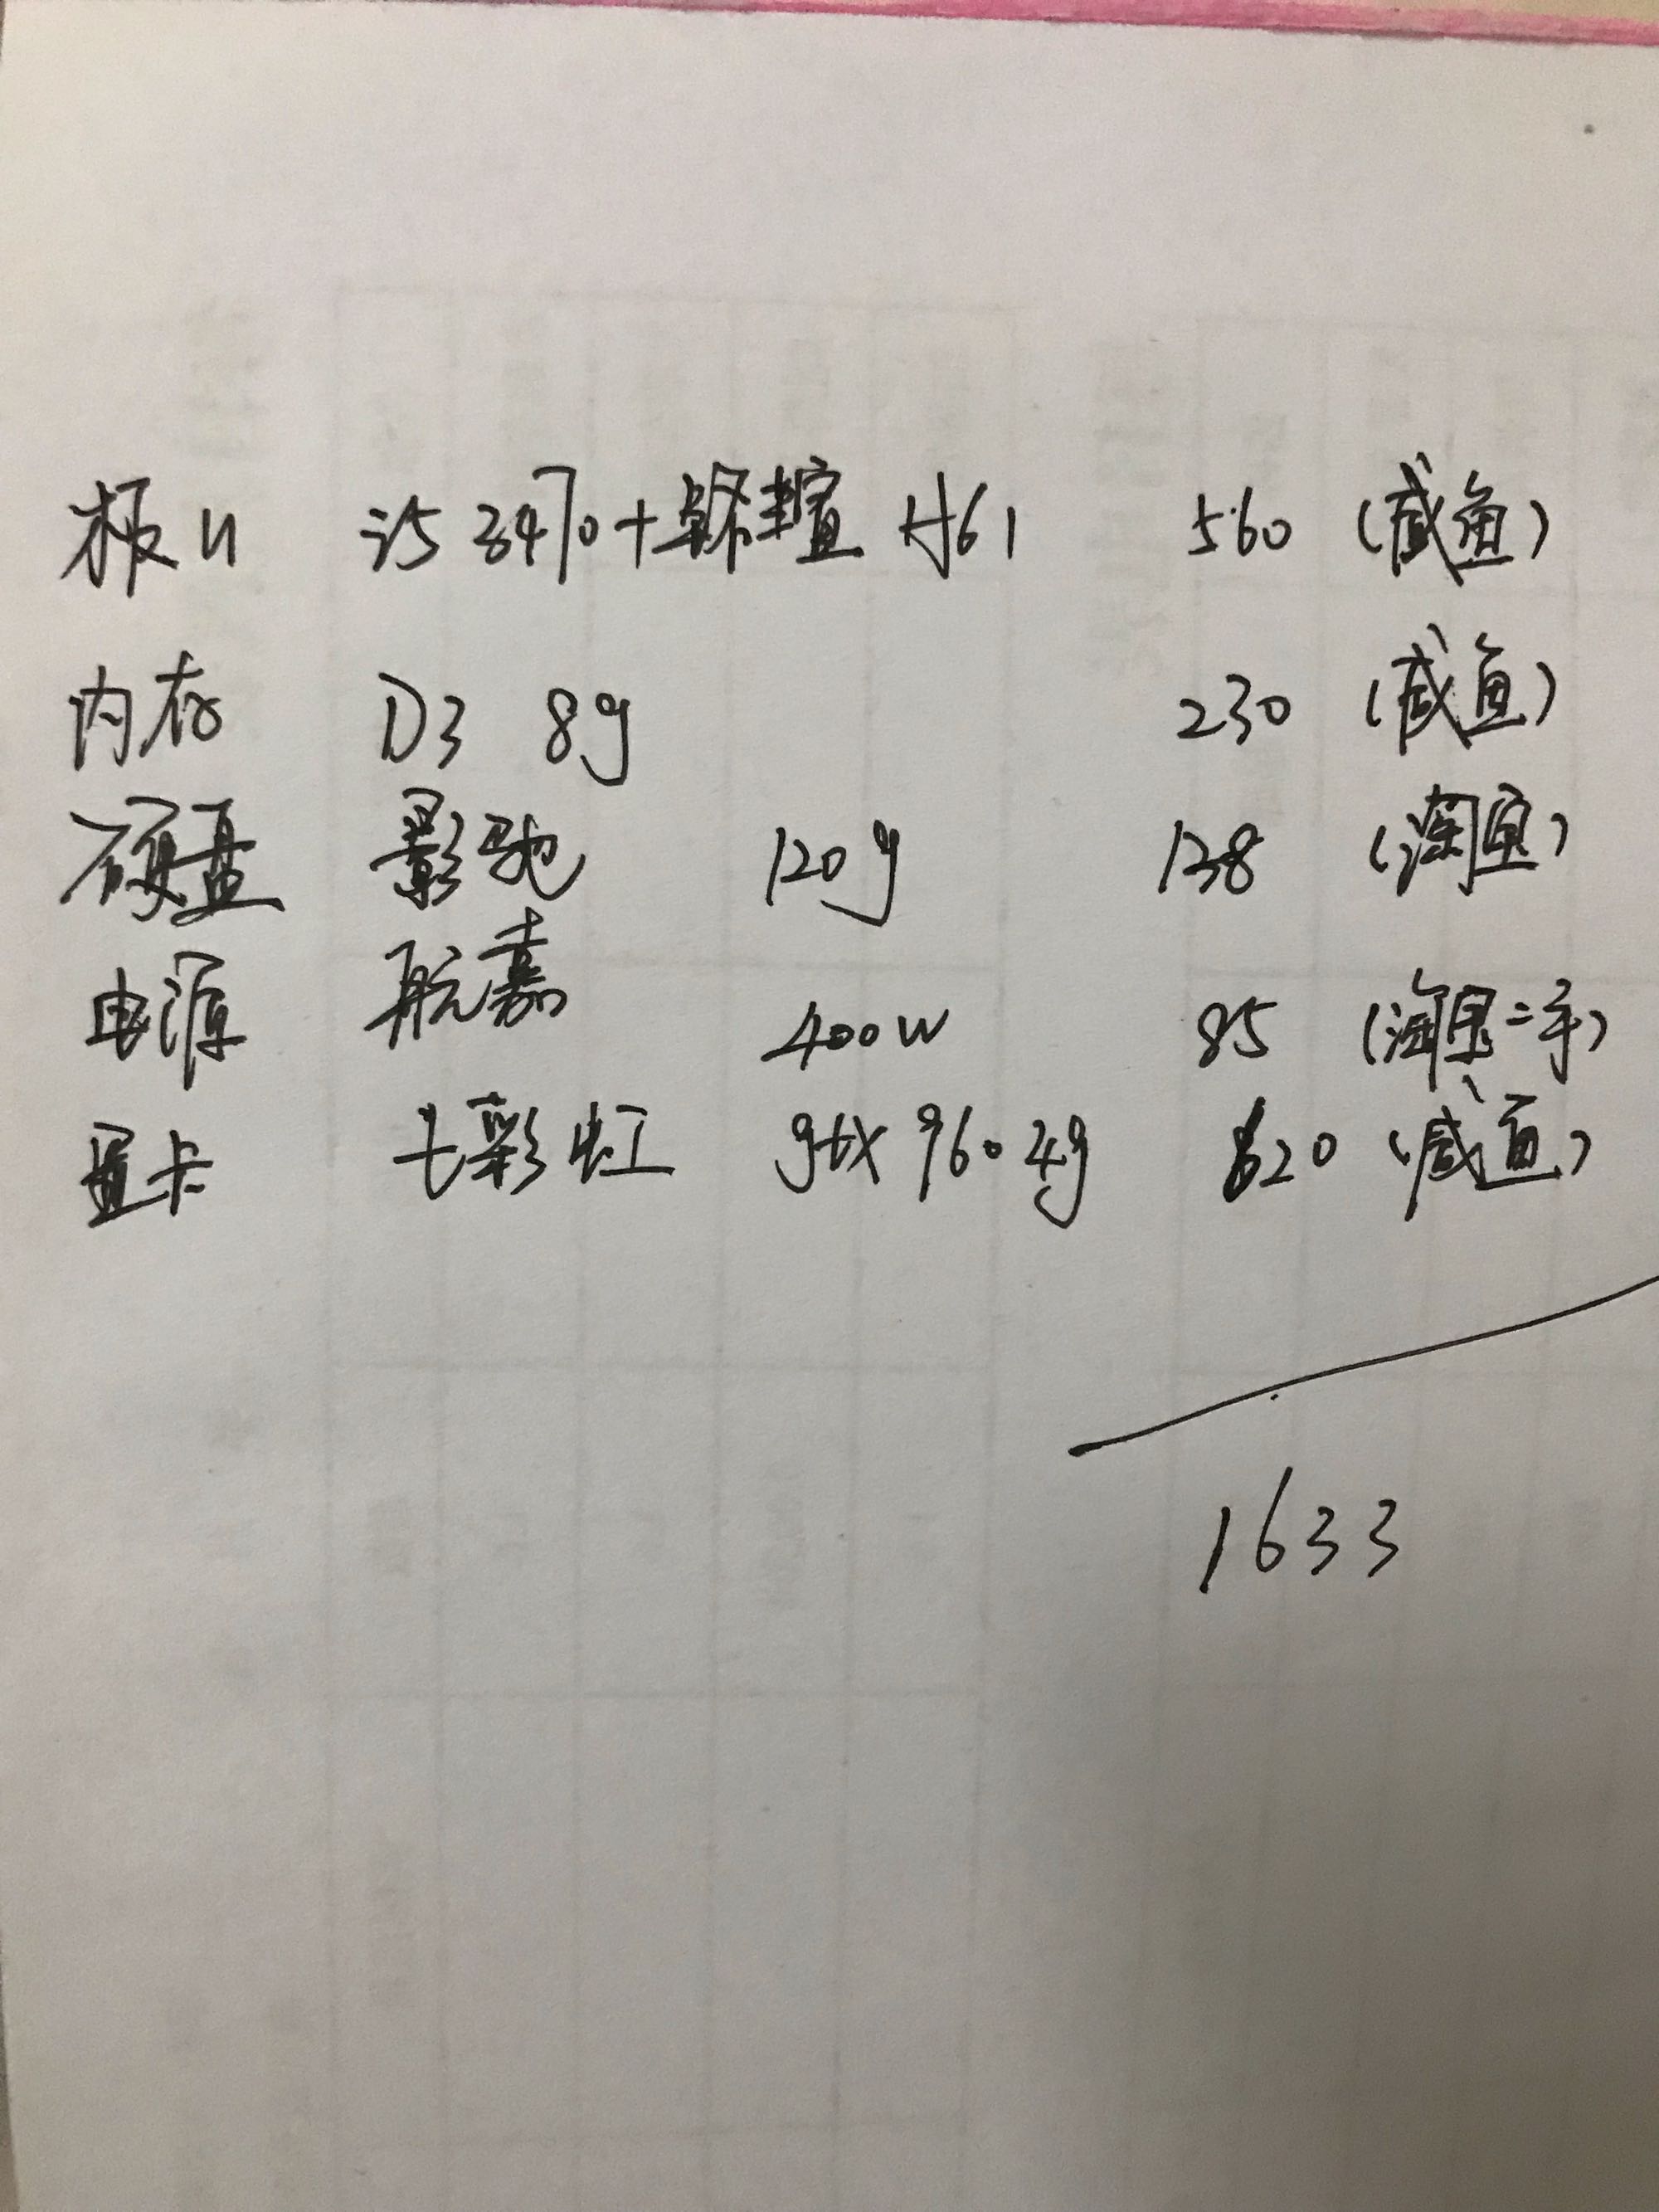 板U i5 3470+ H61 560 (咸鱼)
内存 D3 8g 230 (咸鱼)
硬盘 影驰 120g 138 (淘宝)
电源 航嘉 400W 85 (淘宝二手)
显卡 七彩虹 gtx 960 4g 620 (咸鱼)
1633